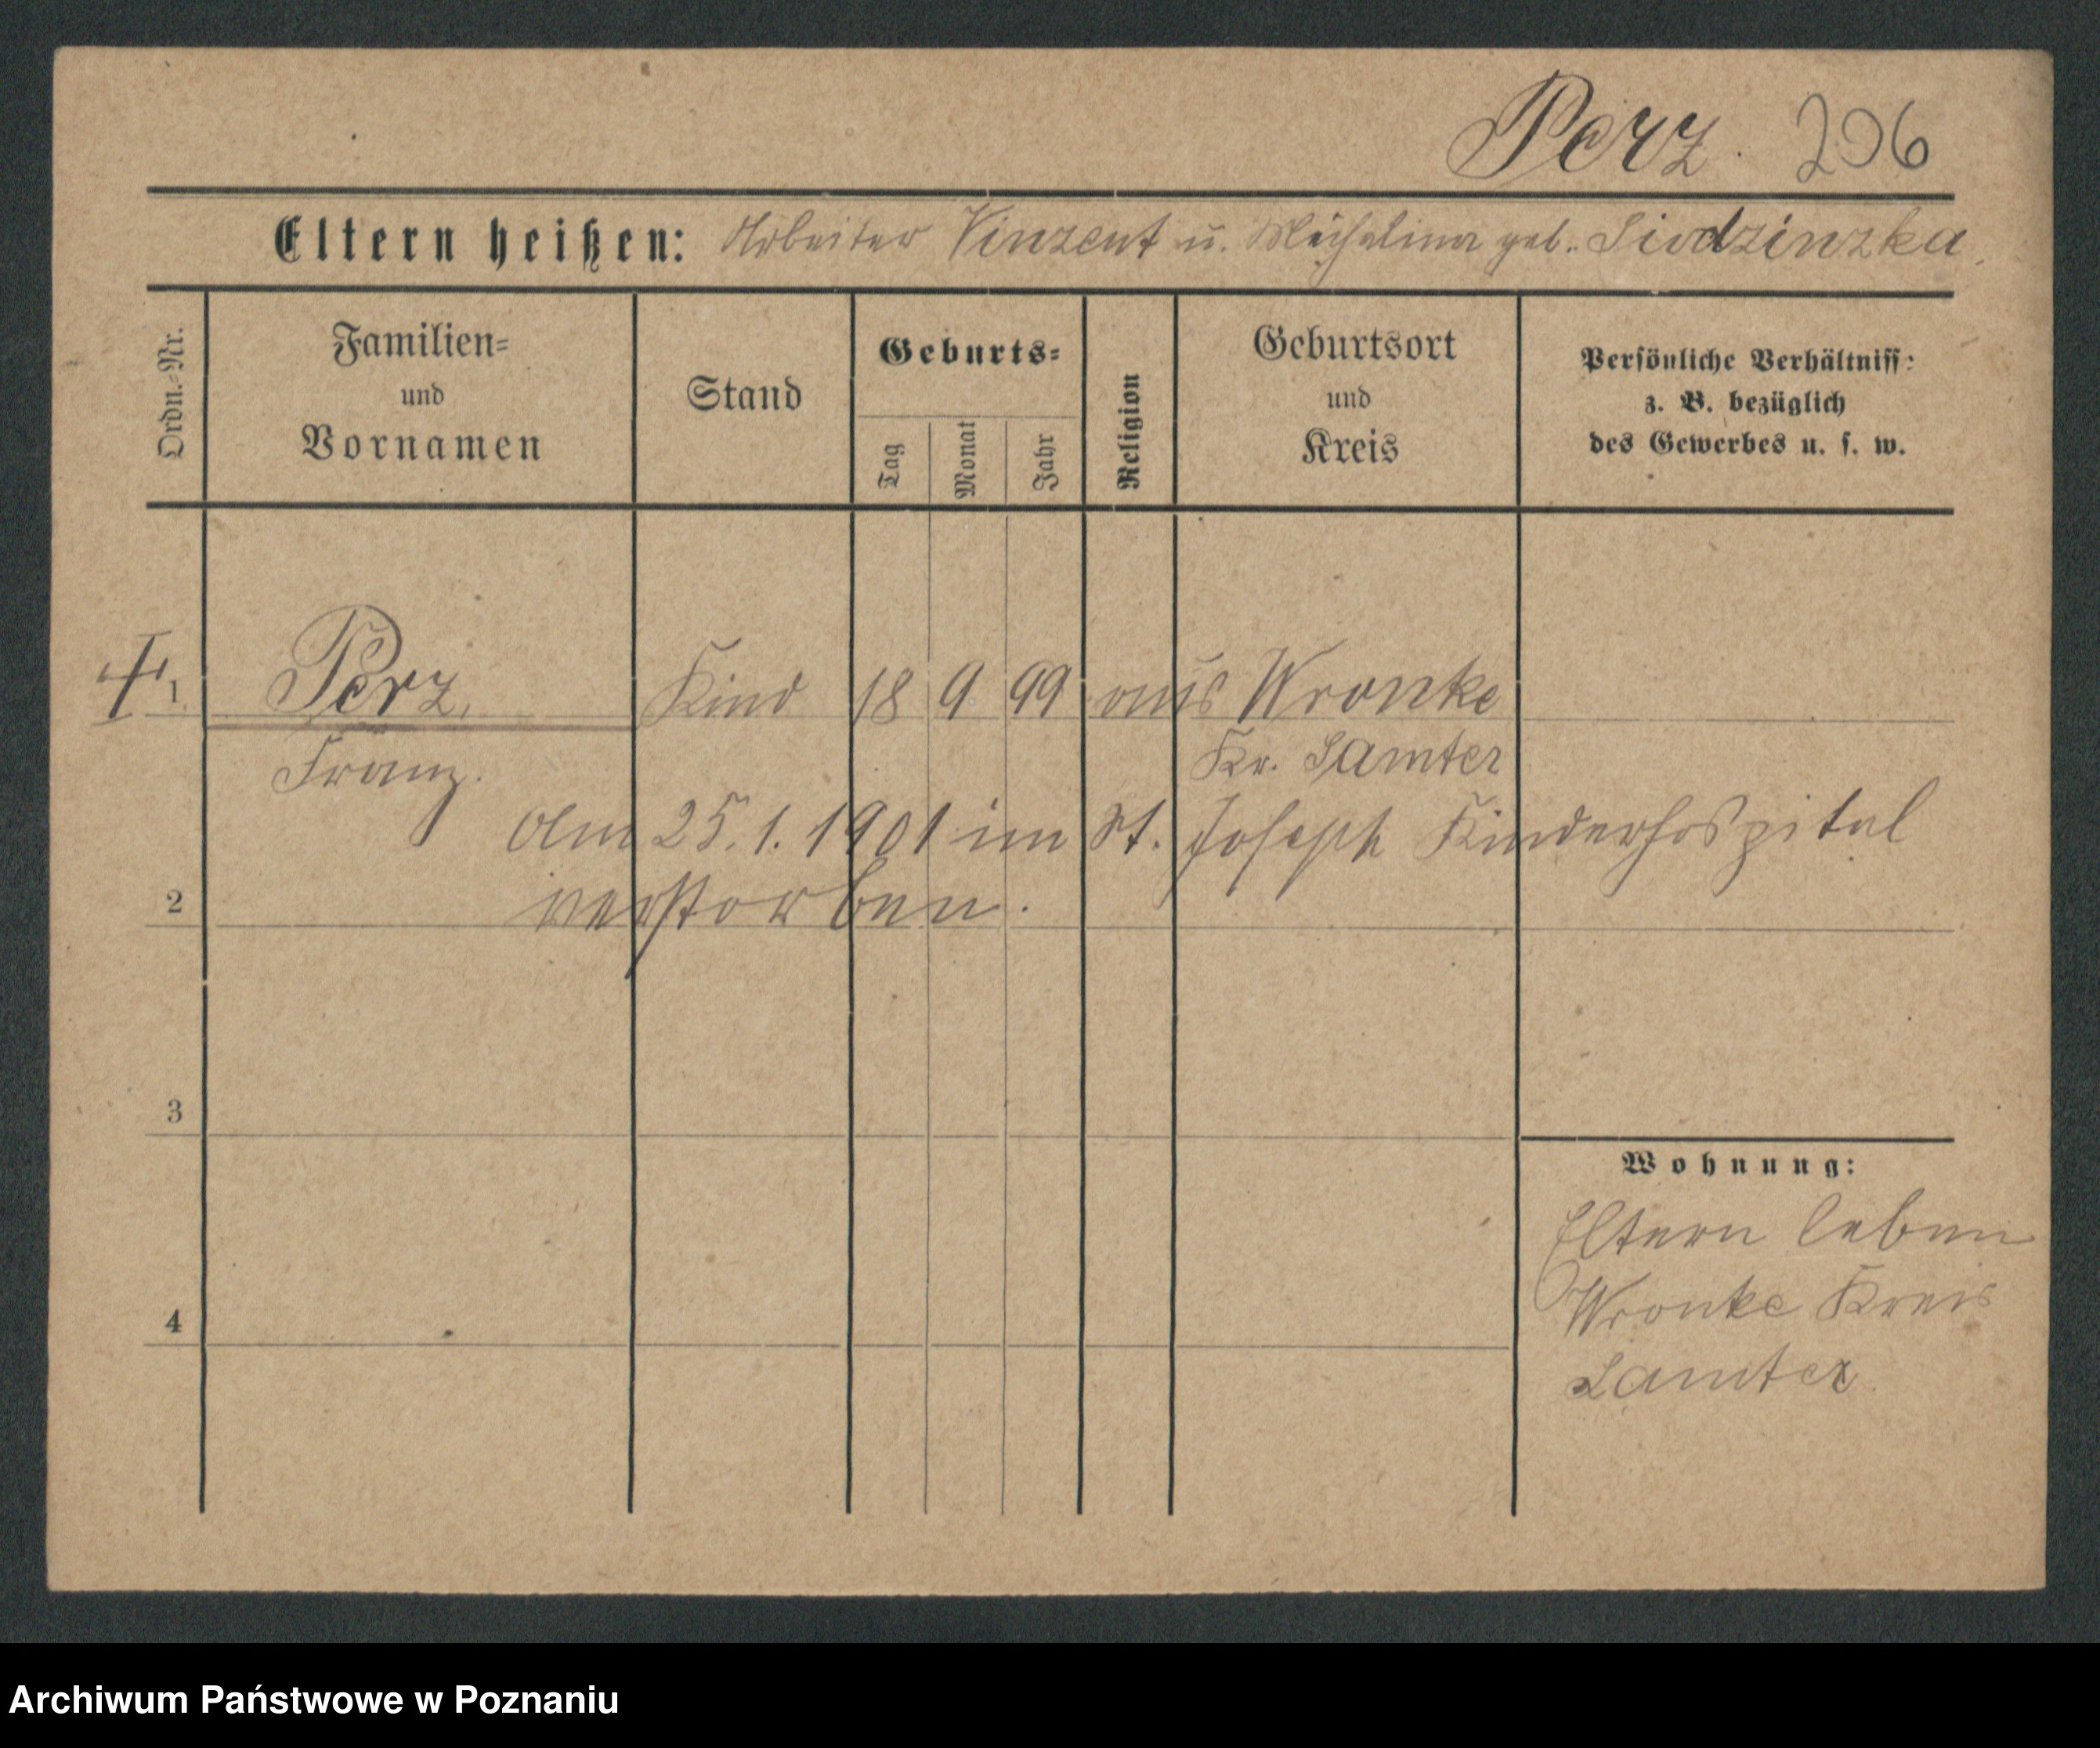 Perz. 206
Eltern heißen: Arbeiter Vinzent u. Michalina geb. Siodzinzka.
Ordn.-Nr.
Familien- und Vornamen
Stand
Geburts-
Tag
Monat
Jahr
Religion
Geburtsort und Kreis
Persönliche Verhältniss:
z. B. bezüglich
des Gewerbes u. s. w.
1 Perz, Kind 18 9 99 aus Wronke
Franz. Kr. Samter
Am 25.1.1901 im St. Joseph Kinderhospital
2 verstorben.
3
Wohnung:
Eltern leben
4 Wronke Kreis
Samter
Archiwum Państwowe w Poznaniu